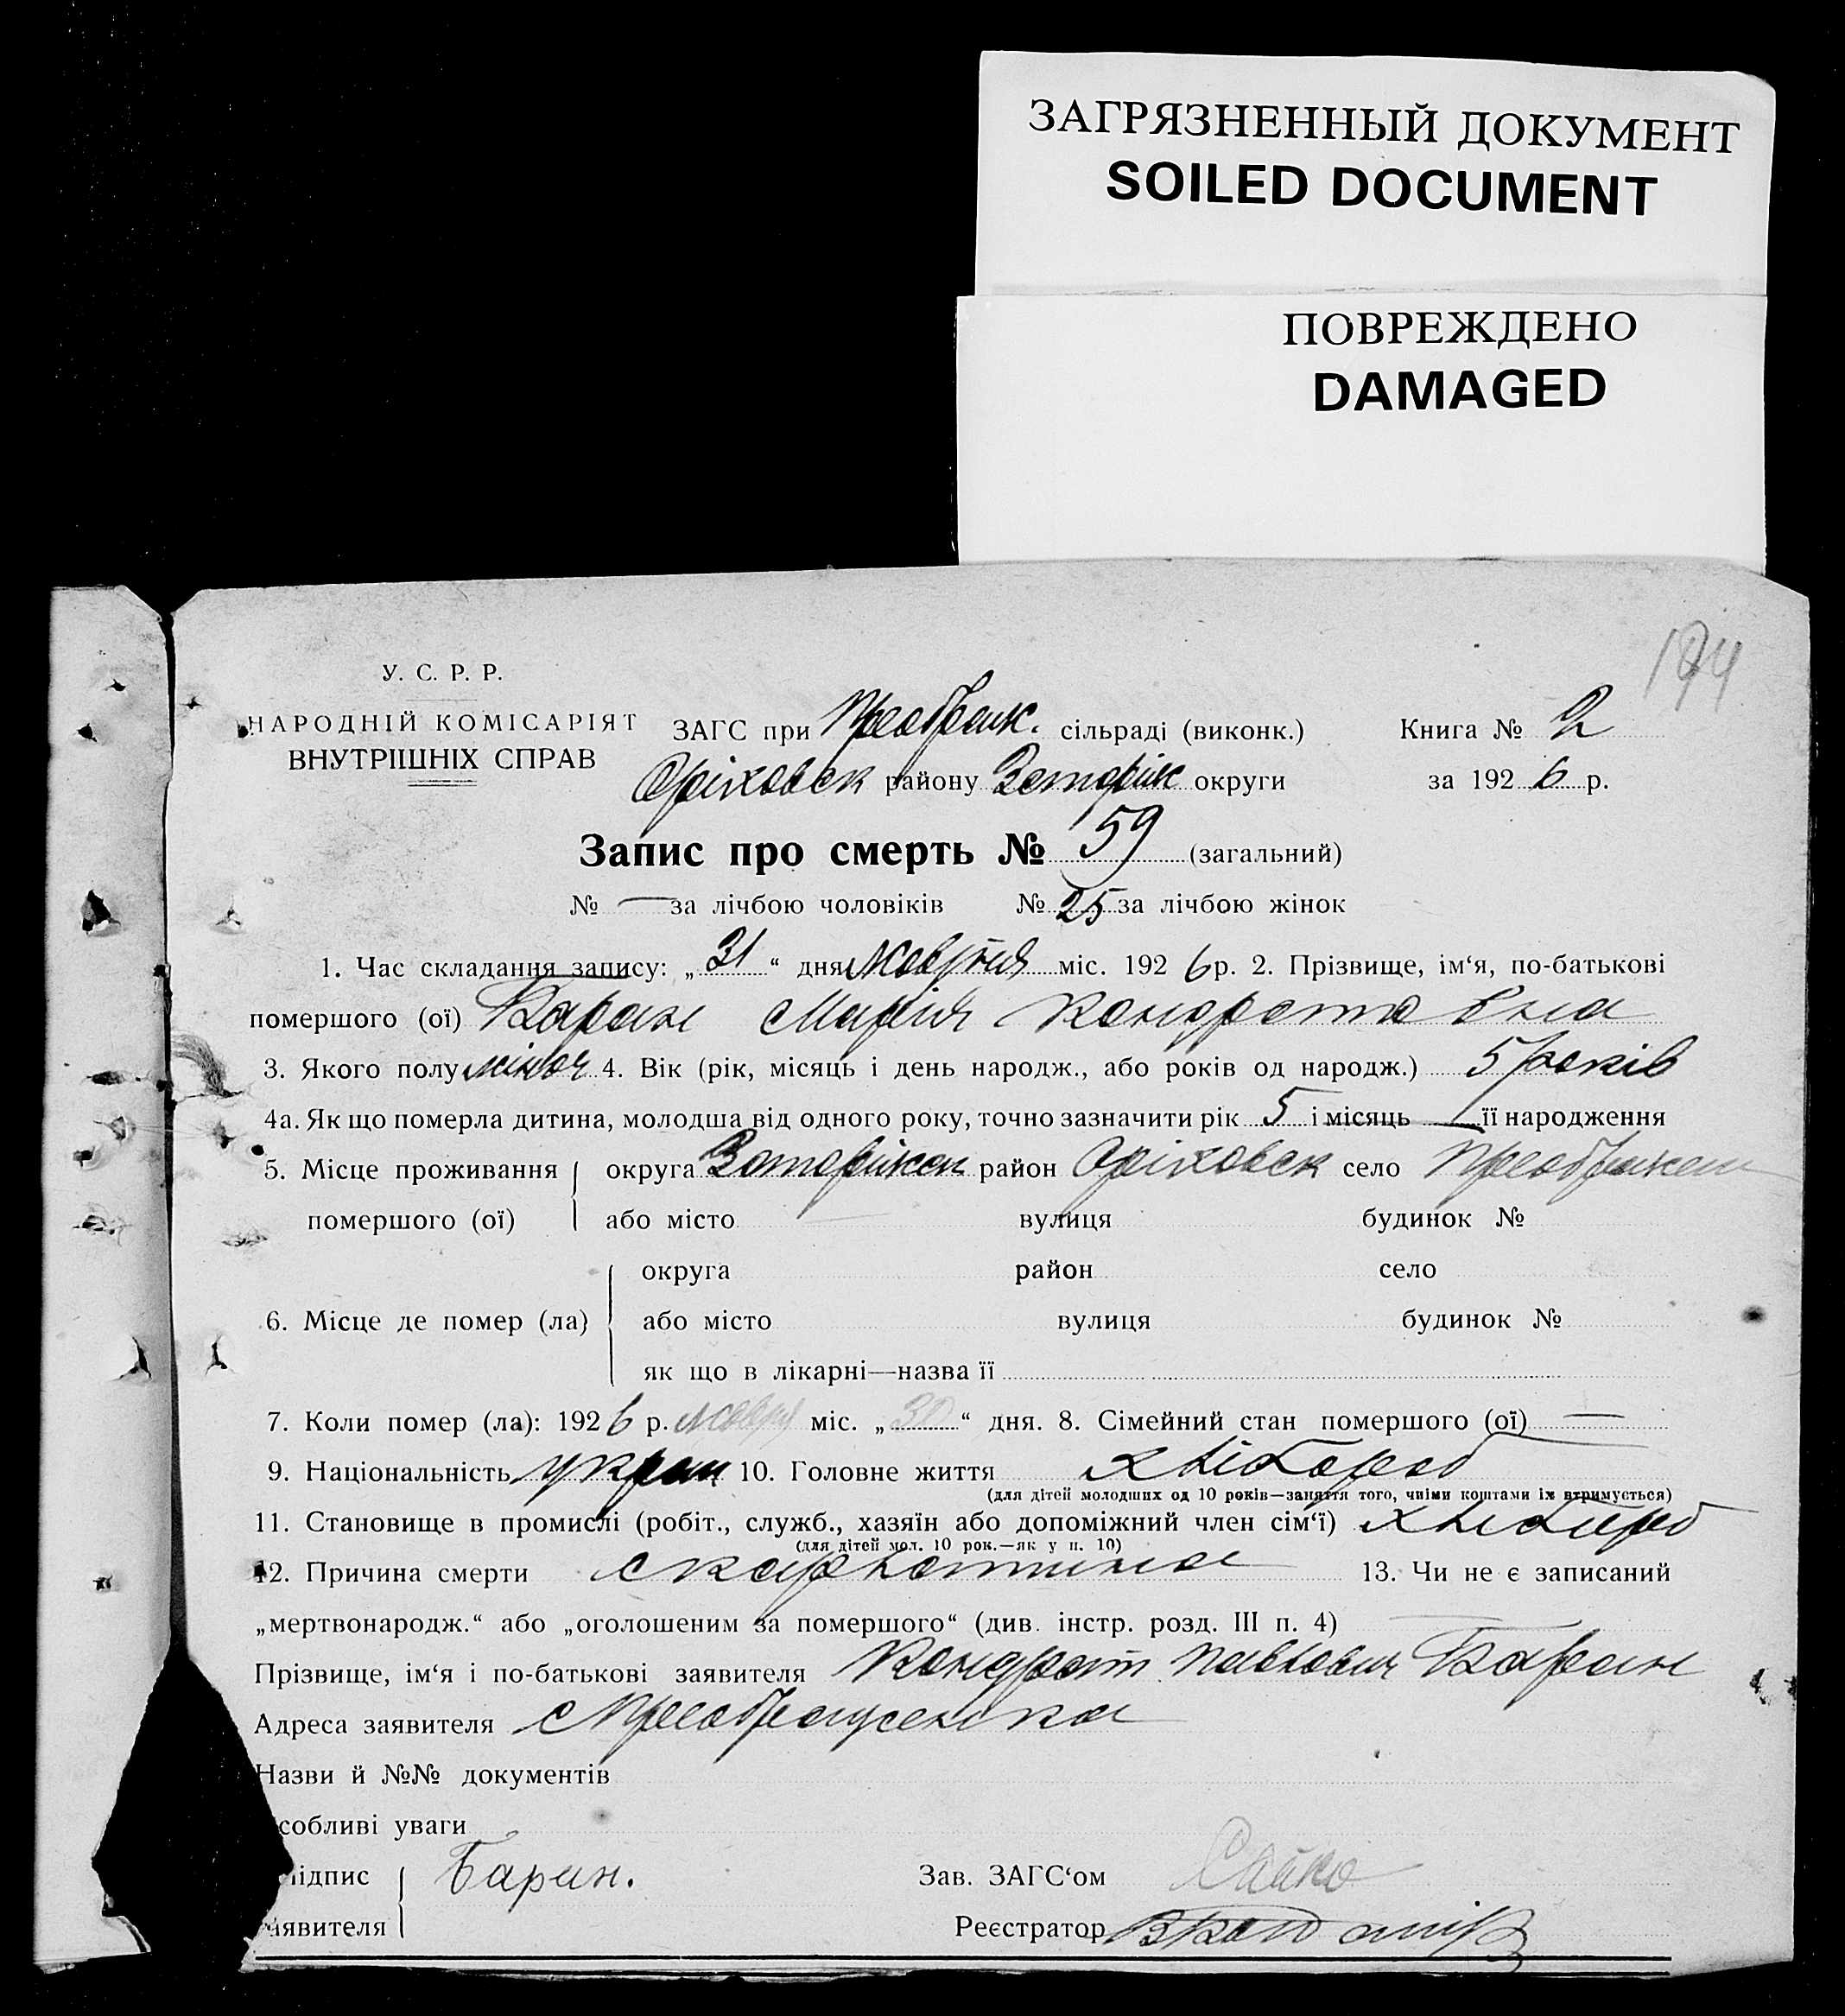 ЗАГРЯЗНЕННЫЙ ДОКУМЕНТ
SOILED DOCUMENT
ПОВРЕЖДЕНО
DAMAGED
194
У. С. Р. Р.
НАРОДНІЙ КОМІСАРІЯТ
ВНУТРІШНІХ СПРАВ
ЗАГС при Преображ. сільраді (виконк.) Книга № 2
Оріховск району Запоріж округи за 1926 р.
Запис про смерть № 59 (загальний)
№ — за лічбою чоловіків № 25 за лічбою жінок
1. Час складання запису: „31“ дня жовтня міс. 1926 р. 2. Прізвище, ім‘я, по-батькові
помершого (ої) Баран Марія Кондратовна
3. Якого полу жіноч 4. Вік (рік, місяць і день народж., або років од народж.) 5 років
4а. Як що померла дитина, молодша від одного року, точно зазначити рік 5 і місяць — її народження
5. Місце проживання помершого (ої) округа Запоріжск район Оріховск село Преображен
або місто вулиця будинок №
6. Місце де помер (ла) округа район село
або місто вулиця будинок №
як що в лікарні—назва її
7. Коли помер (ла): 1926 р. жовтня міс. „30“ дня. 8. Сімейний стан помершого (ої) —
9. Національність україн 10. Головне життя хлібороб
(для дітей молодших од 10 років—заняття того, чиїми коштами їх втримується)
11. Становище в промислі (робіт., служб., хазяїн або допоміжний член сім‘ї) хлібороб
(для дітей мол. 10 рок.—як у п. 10)
12. Причина смерти скарлатина 13. Чи не є записаний
„мертвонародж.“ або „оголошеним за помершого“ (див. інстр. розд. III п. 4)
Прізвище, ім‘я і по-батькові заявителя Кондрат Павлович Баран
Адреса заявителя с Преображенка
Назви й №№ документів
собливі уваги
ідпис аявителя Баран. Зав. ЗАГС‘ом Сайко
Реєстратор